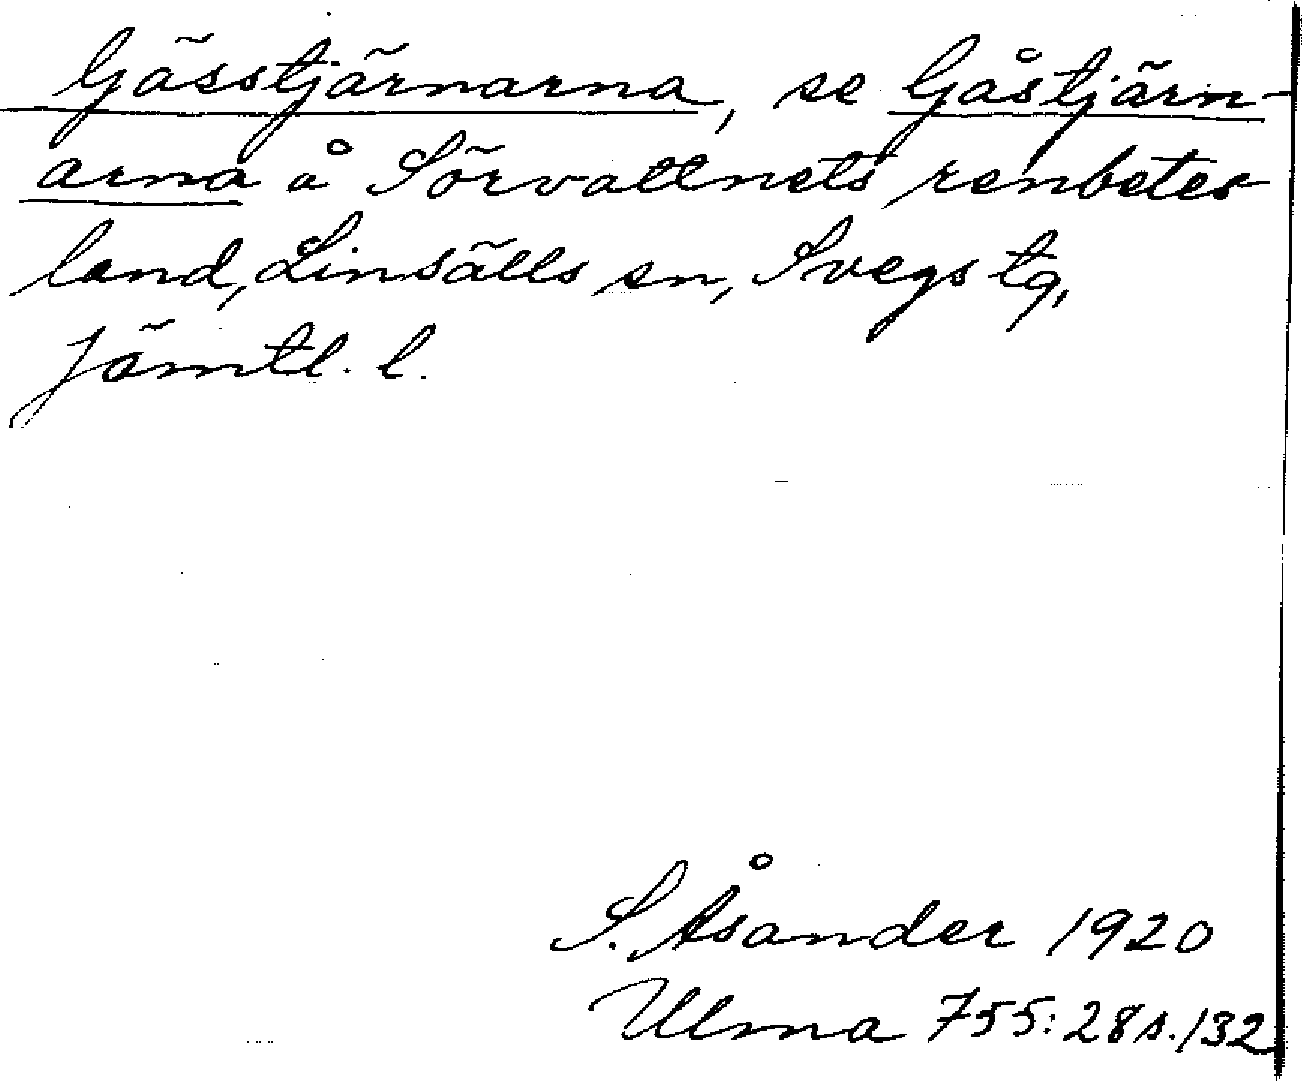 Gässtjärnarna, se Gåstjärn-
arna å Sörvattnets renbetes
land, Linsälls sn, Svegs tg,
Jämtl. l.
S. Åsander 1920
Ulma 755:28 s. 132